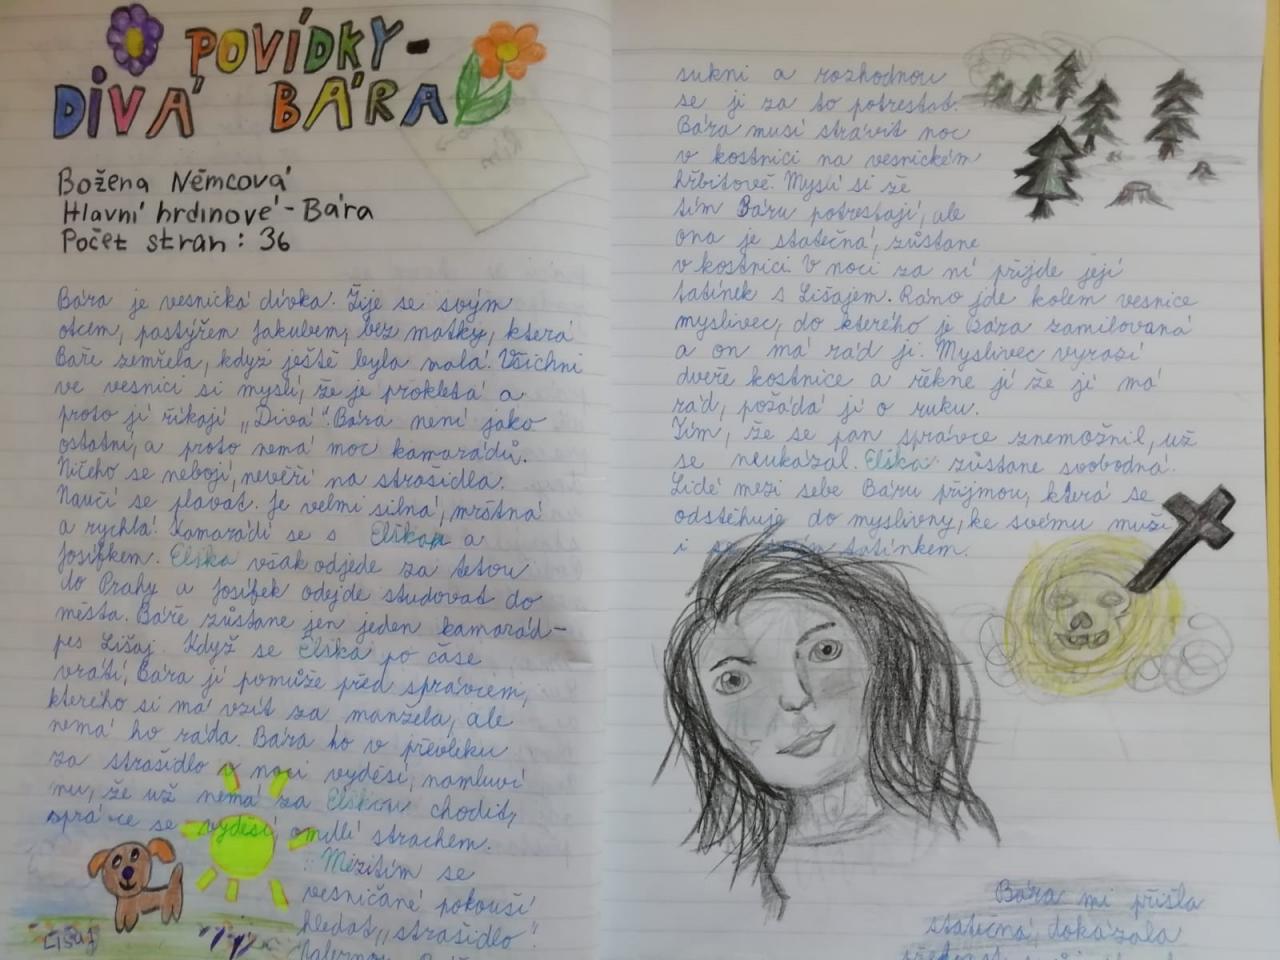 POVÍDKY-
DIVÁ BÁRA
Božena Němcová
Hlavní hrdinové - Bára
Počet stran: 36
Bára je vesnická dívka. Žije se svým
otcem, pastýřem Jakubem, bez matky, která
Báře zemřela, když ještě byla malá. Všichni
ve vesnici si myslí, že je prokletá a
proto jí říkají „Divá". Bára není jako
ostatní, a proto nemá moc kamarádů.
Ničeho se nebojí, nevěří na strašidla.
Naučí se plavat. Je velmi silná, mrštná
a rychlá. Kamarádí se s Elškou a
Josífkem. Elška však odjede za tetou
do Prahy a Josífek odejde studovat do
města. Báře zůstane jen jeden kamarád-
pes Lišaj. Když se Elška po čase
vrátí, Bára jí pomůže před správcem,
kterého si má vzít za manžela, ale
nemá ho ráda. Bára ho v převleku
za strašidlo v noci vyděsí, namluví
mu, že už nemá za Elškou chodit,
správce se vyděsí, omdlí strachem.
Mezitím se
vesničané pokouší
hledat „strašidlo".
Lišaj
sukni a rozhodnou
se ji za to potrestat.
Bára musí strávit noc
v kostnici na vesnickém
hřbitově. Myslí si že
tím Báru potrestají, ale
ona je statečná, zůstane
v kostnici. V noci za ní přijde její
tatínek s Lišajem. Ráno jde kolem vesnice
myslivec, do kterého je Bára zamilovaná
a on má rád ji. Myslivec vyrazí
dveře kostnice a řekne jí že ji má
rád, požádá ji o ruku.
Tím, že se pan správce znemožnil, už
se neukázal. Elška zůstane svobodná.
Lidé mezi sebe Báru přijmou, která se
odstěhuje do myslivny, ke svému muži
i se svým tatínkem.
Bára mi přišla
statečná, dokázala